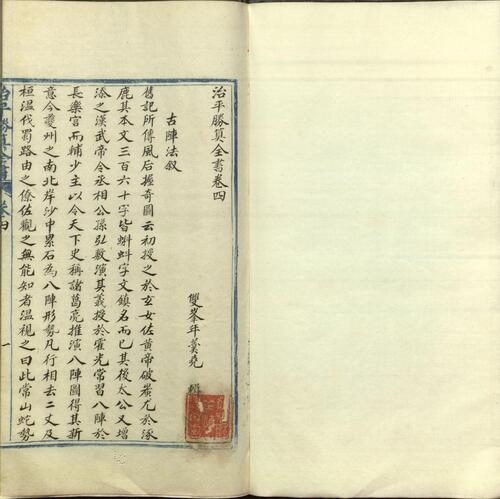 治平勝算全書卷四
雙峯年羹堯 輯
古陣法叙
舊記所傳風后握奇圖云初授之於玄女佐黃帝破蚩尤於涿
鹿其本文三百六十字皆蝌蚪字文鎮名而已其後太公又增
添之漢武帝令丞相公孫弘敷演其義授於霍光常習八陣於
長樂宫而輔少主以令天下史稱諸葛亮推演八陣圖得其新
意今夔州之南北岸沙中累石為八陣形勢凡行相去二丈及
桓温伐蜀路由之僚佐觀之無能知者温視之曰此常山蛇勢
治平勝算全書 卷四 一